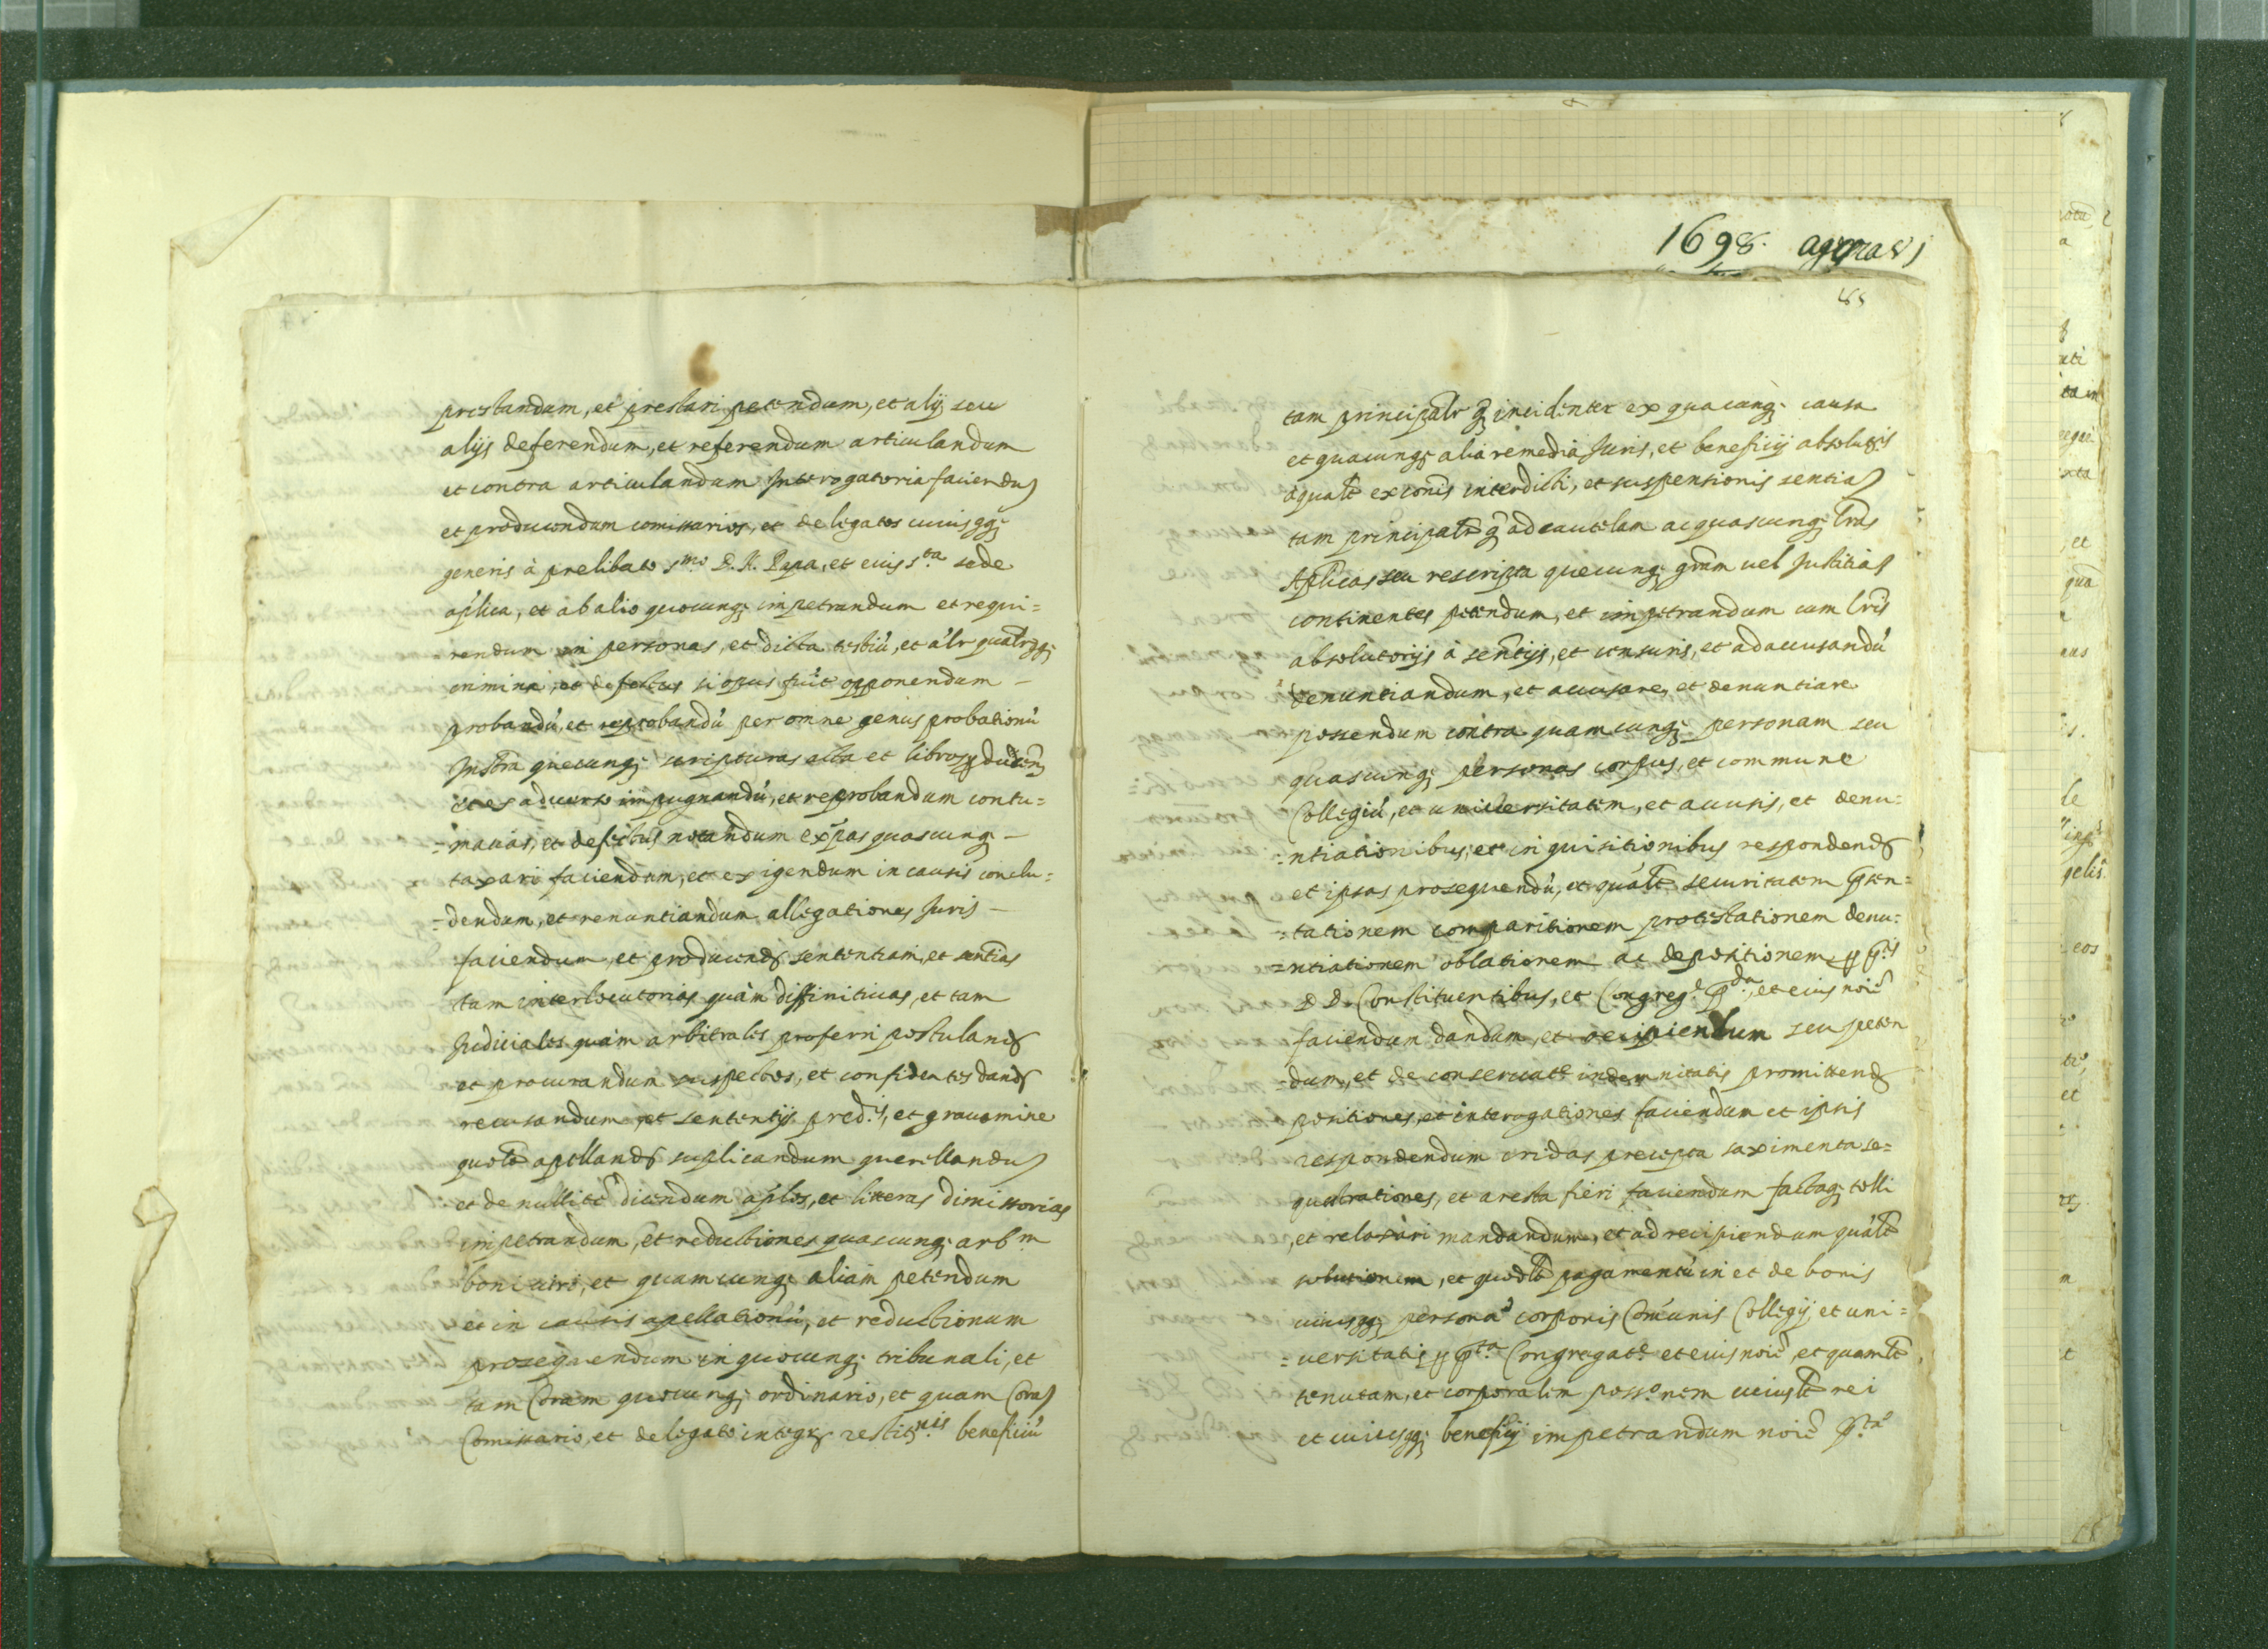 prestandum, et prestari petendum, et alij seu
alijs deferendum, et referendum articulandum
et contra articulandum Interogatoria faciendu
et producendum comissarios, et delegatos cuiusqq;
generis à prelibato smo D. N. Papa, et eius sta sede
aplica, et ab alio quocunq; impetrandum et requi=
rendum in personas, et dicta testiu, et alr
crimina, et defectus si opus fuit opponendum —
probandú, et reprobandú per omne genus probationú
Instra quecunq; scripturas acta et libros
et ex adverso impugnandú, et reprobandum contu=
=macias, et defectus notandum expas quascunq; —
taxari faciendum, et exigendum in causis conclu=
=dendum, et renuntiandum allegationes Juris —
faciendum, et producend sententiam, et sentias
tam interlocutorias quàm diffinitivas, et tam
Judiciales quàm arbitrales proferri postuland
et procurandum suspectos, et confidentes dand
recusandum, et sententijs pred.s, et gravamine
quolt apelland suplicandum querellandu
et de nullite dicendum aplos, et litteras dimissorias
impetrandum, et reductiones quascunq; arbm
boni viri, et quamcunq; aliam petendum
et in causis apellationú, et reductionum
prosequendum in quocunq; tribunali, et
tam Coram quocunq; ordinario, et quam Cora
Comissario et delegato integr restitnis beneficiú
1698.
85
tam principalr q incidenter ex quacunq; causa
et quacunq; alia remedia Juris, et beneficij absolutis
a qualt exconis interdicti, et suspensionis sentia
tam principalr q ad cautelam ac quascunq; lras
Aplicas seu rescripta quecunq; gram vel Justitia
continentes petendum, et impetrandum cum lris
absolutorijs à sentijs, et censuris, et ad accusandú
denuntiandum, et accusare, et denuntiare
possendum contra quamcunq; personam seu
quascunq; personas corpus, et commune
Collegiú, et universitatem, et accusis, et denu=
=ntiationibus, et inquisitionibus respondend
et ipsas prosequendú, et quált securitatem pten=
=tationem comparitionem protestationem denu=
=ntiationem oblationem ac depositionem p ptis
DD. Constituentibus, et Congreg.e pda, et eius noie
faciendum dandum, et recipiendum seu peten
=dum, et de conservate indemnitatis promittend
positiones, et interogationes faciendum et ipsis
respondendum cridas precepta saximenta se=
questrationes, et aresta fieri faciendum factaq; tolli
et relaxari mandandum, et ad recipiendum quált
solutionem, et quodlt pagamentú in et de bonis
cuiusqq; persona corporis Comunis Collegij, et uni=
=versitatis p pta Congregat.e et eius noie, et quamlt
tenutam, et corporalem possonem cuiuslt rei
et cuiusqq; beneficij impetrandum noie pta